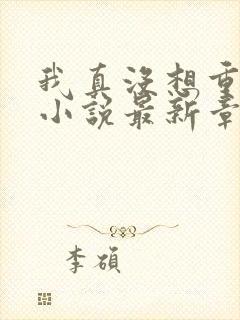 我真没想重
小说最新章
李硕